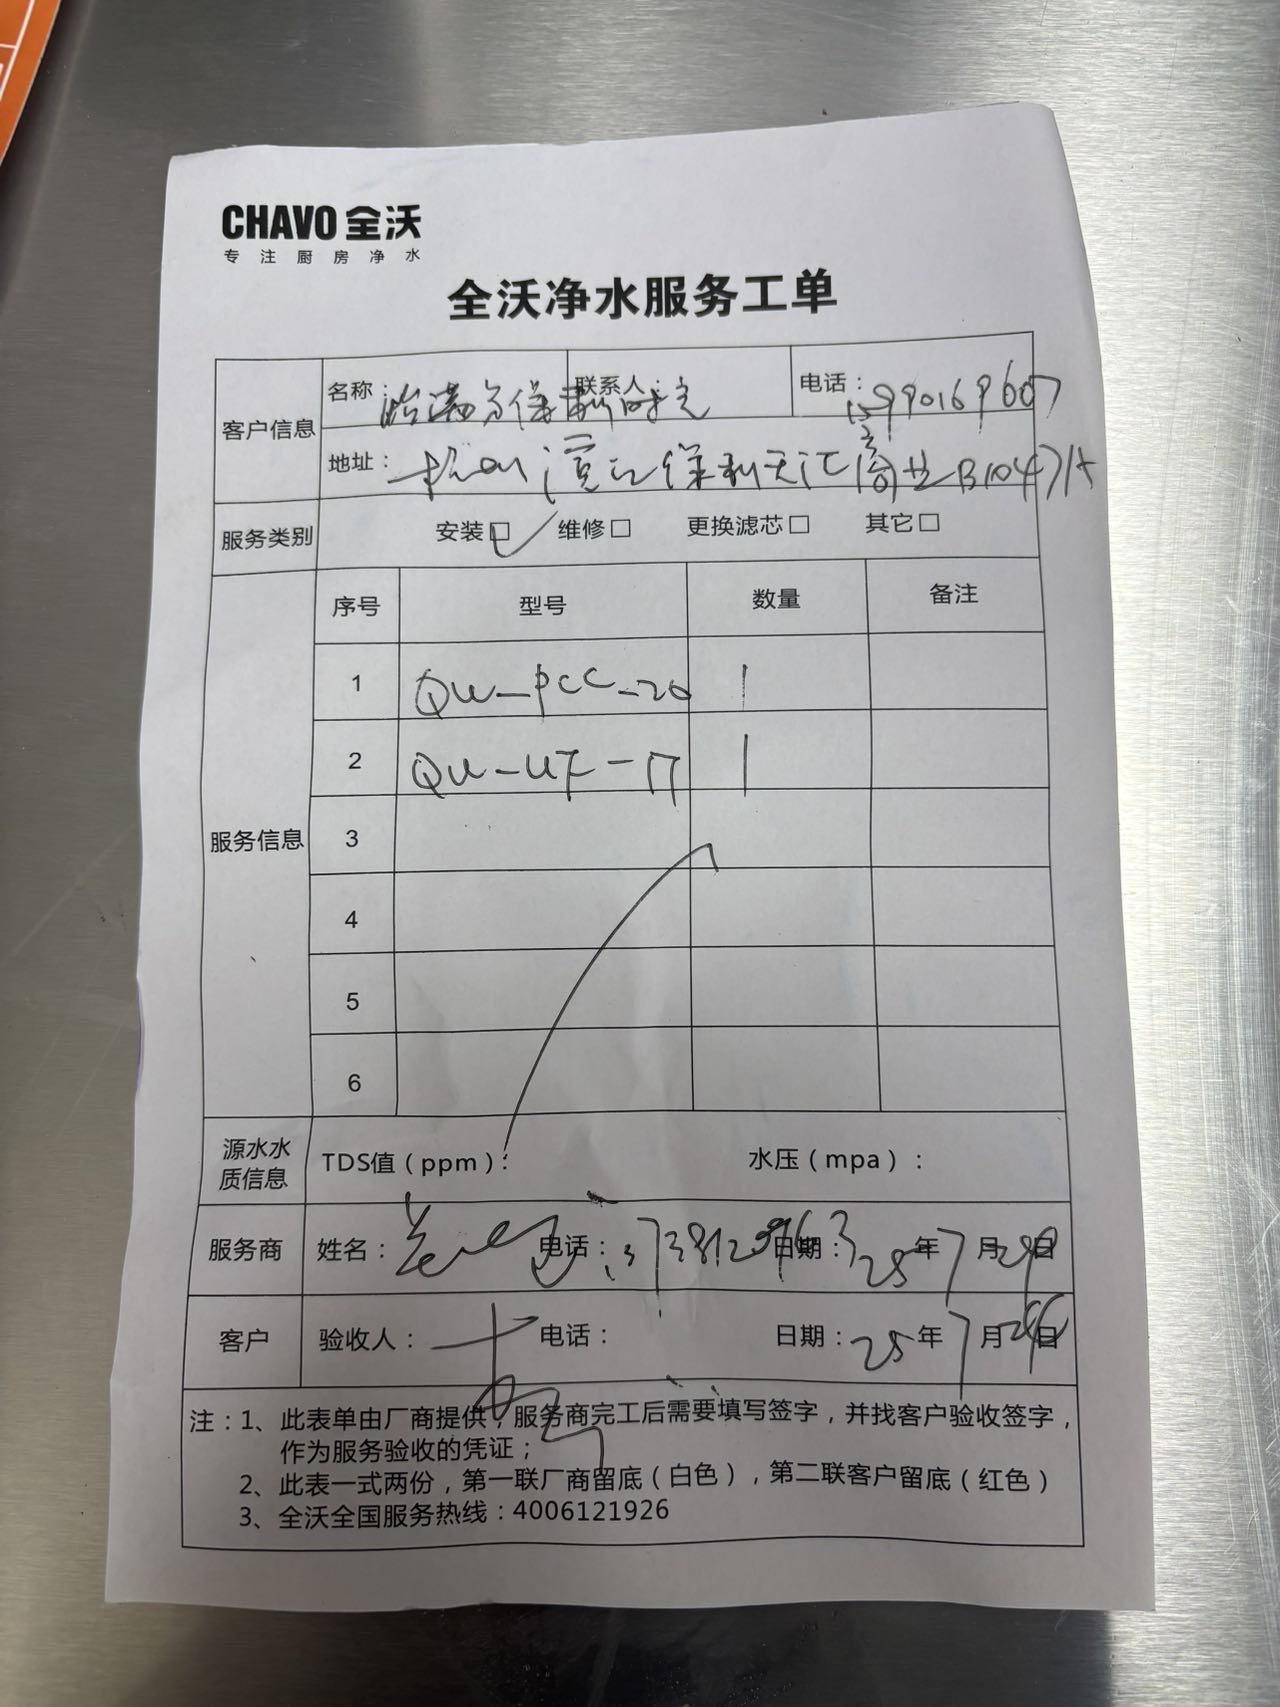 CHAVO 全沃
专注厨房净水
全沃净水服务工单
客户信息 名称： 联系人： 电话：
地址： 杭州滨江保利天汇商业B104
服务类别 安装☑ 维修□ 更换滤芯□ 其它□
服务信息 序号 型号 数量 备注
1 QW-PCC-20 1
2 QW-UF-17 1
3
4
5
6
源水水质信息 TDS值（ppm）： 水压（mpa）：
服务商 姓名： 电话： 日期：25年7月29日
客户 验收人： 电话： 日期：25年7月日
注：1、此表单由厂商提供，服务商完工后需要填写签字，并找客户验收签字，
作为服务验收的凭证；
2、此表一式两份，第一联厂商留底（白色），第二联客户留底（红色）
3、全沃全国服务热线：4006121926